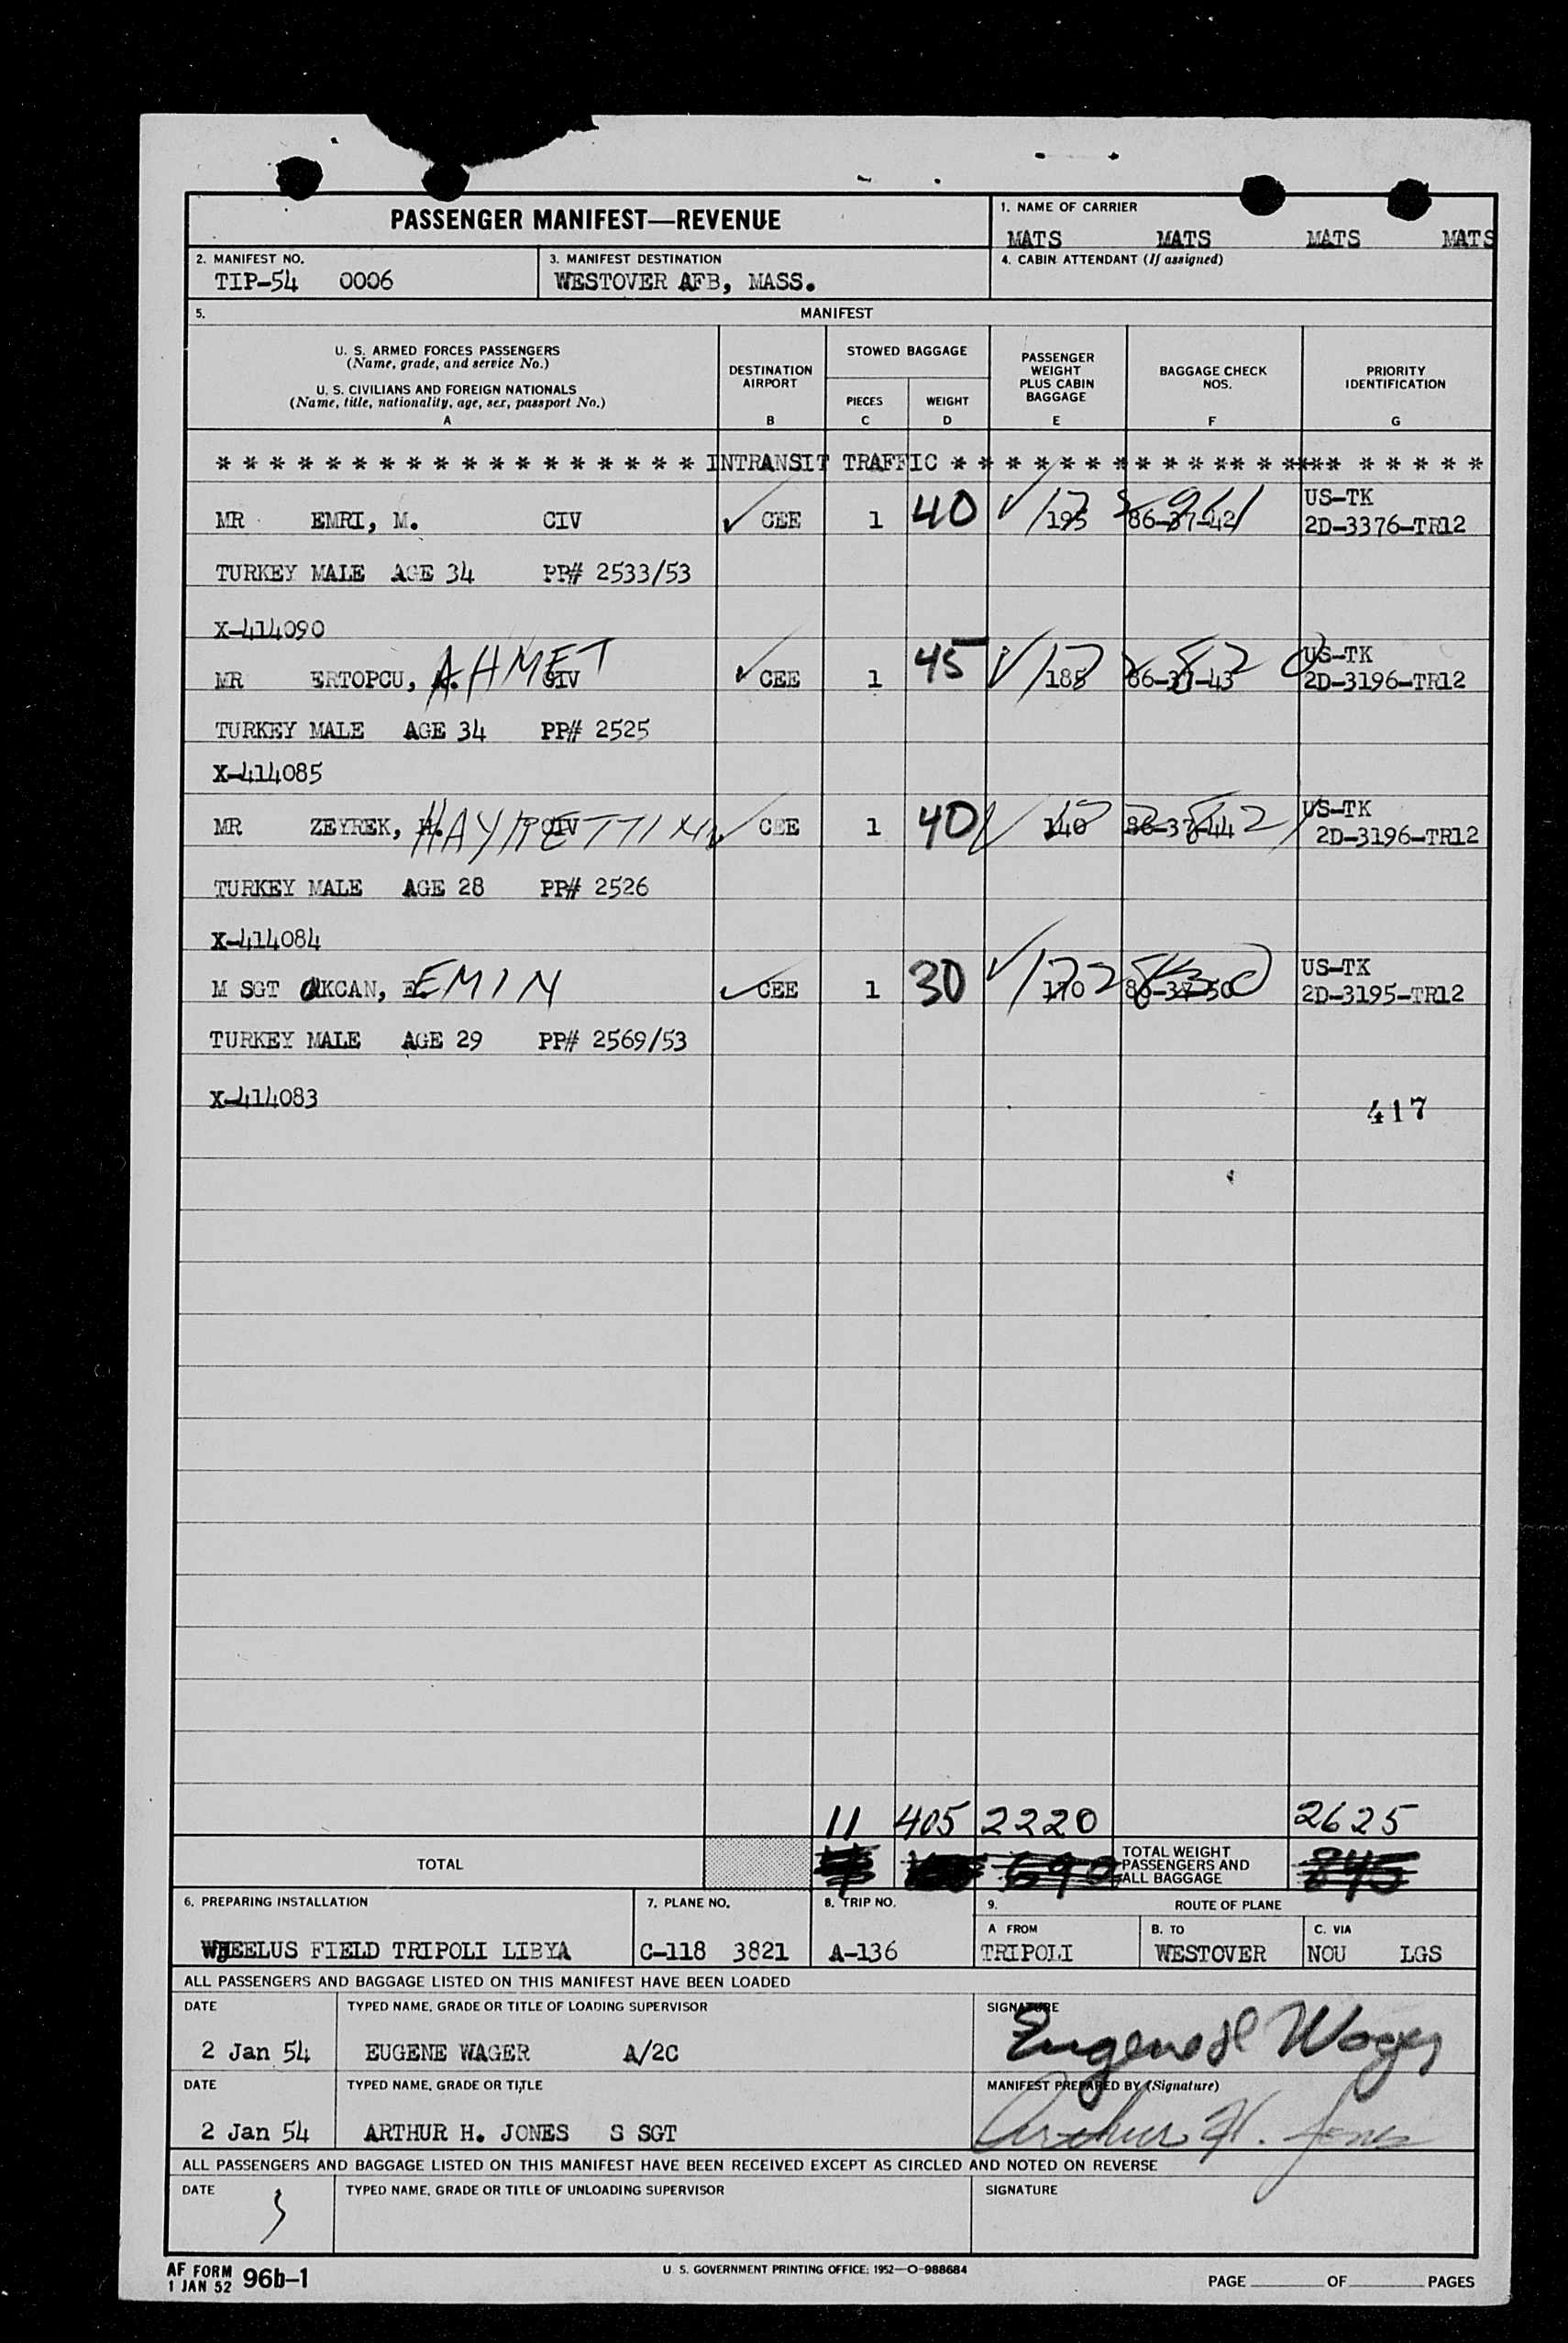 PASSENGER MANIFEST—REVENUE
1. NAME OF CARRIER
MATS MATS MATS MATS
2. MANIFEST NO.
TIP-54 0006
3. MANIFEST DESTINATION
WESTOVER AFB, MASS.
4. CABIN ATTENDANT (If assigned)
5. MANIFEST
U. S. ARMED FORCES PASSENGERS
(Name, grade, and service No.)
U. S. CIVILIANS AND FOREIGN NATIONALS
(Name, title, nationality, age, sex, passport No.)
A
DESTINATION
AIRPORT
B
STOWED BAGGAGE
PIECES
C
WEIGHT
D
PASSENGER
WEIGHT
PLUS CABIN
BAGGAGE
E
BAGGAGE CHECK
NOS.
F
PRIORITY
IDENTIFICATION
G
* * * * * * * * * * * * * * * * * * INTRANSIT TRAFFIC * * * * * * * * * * * ** * **** * * * * *
MR EMRI, M. CIV ✓ CEE 1 40 ✓ 195 86-37-42 US-TK
2D-3376-TR12
TURKEY MALE AGE 34 PP# 2533/53
X-414090
MR ERTOPCU, AHMET CIV ✓ CEE 1 45 ✓ 185 86-37-43 US-TK
2D-3196-TR12
TURKEY MALE AGE 34 PP# 2525
X-414085
MR ZEYREK, H. CIV ✓ CEE 1 40 ✓ 140 86-37-44 US-TK
2D-3196-TR12
TURKEY MALE AGE 28 PP# 2526
X-414084
M SGT AKCAN, E. EMIN ✓ CEE 1 30 ✓ 170 86-37-50 US-TK
2D-3195-TR12
TURKEY MALE AGE 29 PP# 2569/53
X-414083
417
11 405 2220 2625
TOTAL 690 TOTAL WEIGHT
PASSENGERS AND
ALL BAGGAGE 845
6. PREPARING INSTALLATION
WHEELUS FIELD TRIPOLI LIBYA
7. PLANE NO.
C-118 3821
8. TRIP NO.
A-136
9. ROUTE OF PLANE
A FROM
TRIPOLI
B. TO
WESTOVER
C. VIA
NOU LGS
ALL PASSENGERS AND BAGGAGE LISTED ON THIS MANIFEST HAVE BEEN LOADED
DATE
2 Jan 54
TYPED NAME, GRADE OR TITLE OF LOADING SUPERVISOR
EUGENE WAGER A/2C
SIGNATURE
Eugene Wager
DATE
2 Jan 54
TYPED NAME, GRADE OR TITLE
ARTHUR H. JONES S SGT
MANIFEST PREPARED BY (Signature)
Arthur H. Jones
ALL PASSENGERS AND BAGGAGE LISTED ON THIS MANIFEST HAVE BEEN RECEIVED EXCEPT AS CIRCLED AND NOTED ON REVERSE
DATE
3
TYPED NAME, GRADE OR TITLE OF UNLOADING SUPERVISOR
SIGNATURE
AF FORM
1 JAN 52 96b-1
U. S. GOVERNMENT PRINTING OFFICE: 1952—O-988684
PAGE ______ OF ______ PAGES